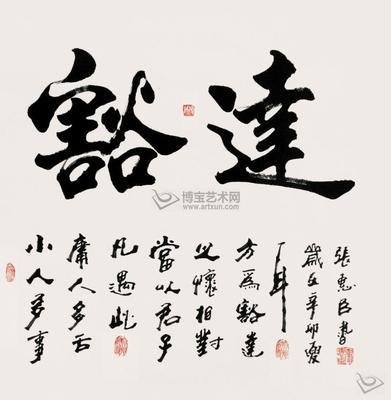 豁達
小人多事
庸人多舌
凡遇此
當以君子
之懷相對
方為豁達
歲在辛卯夏
張惠臣書
博宝艺术网
www.artxun.com